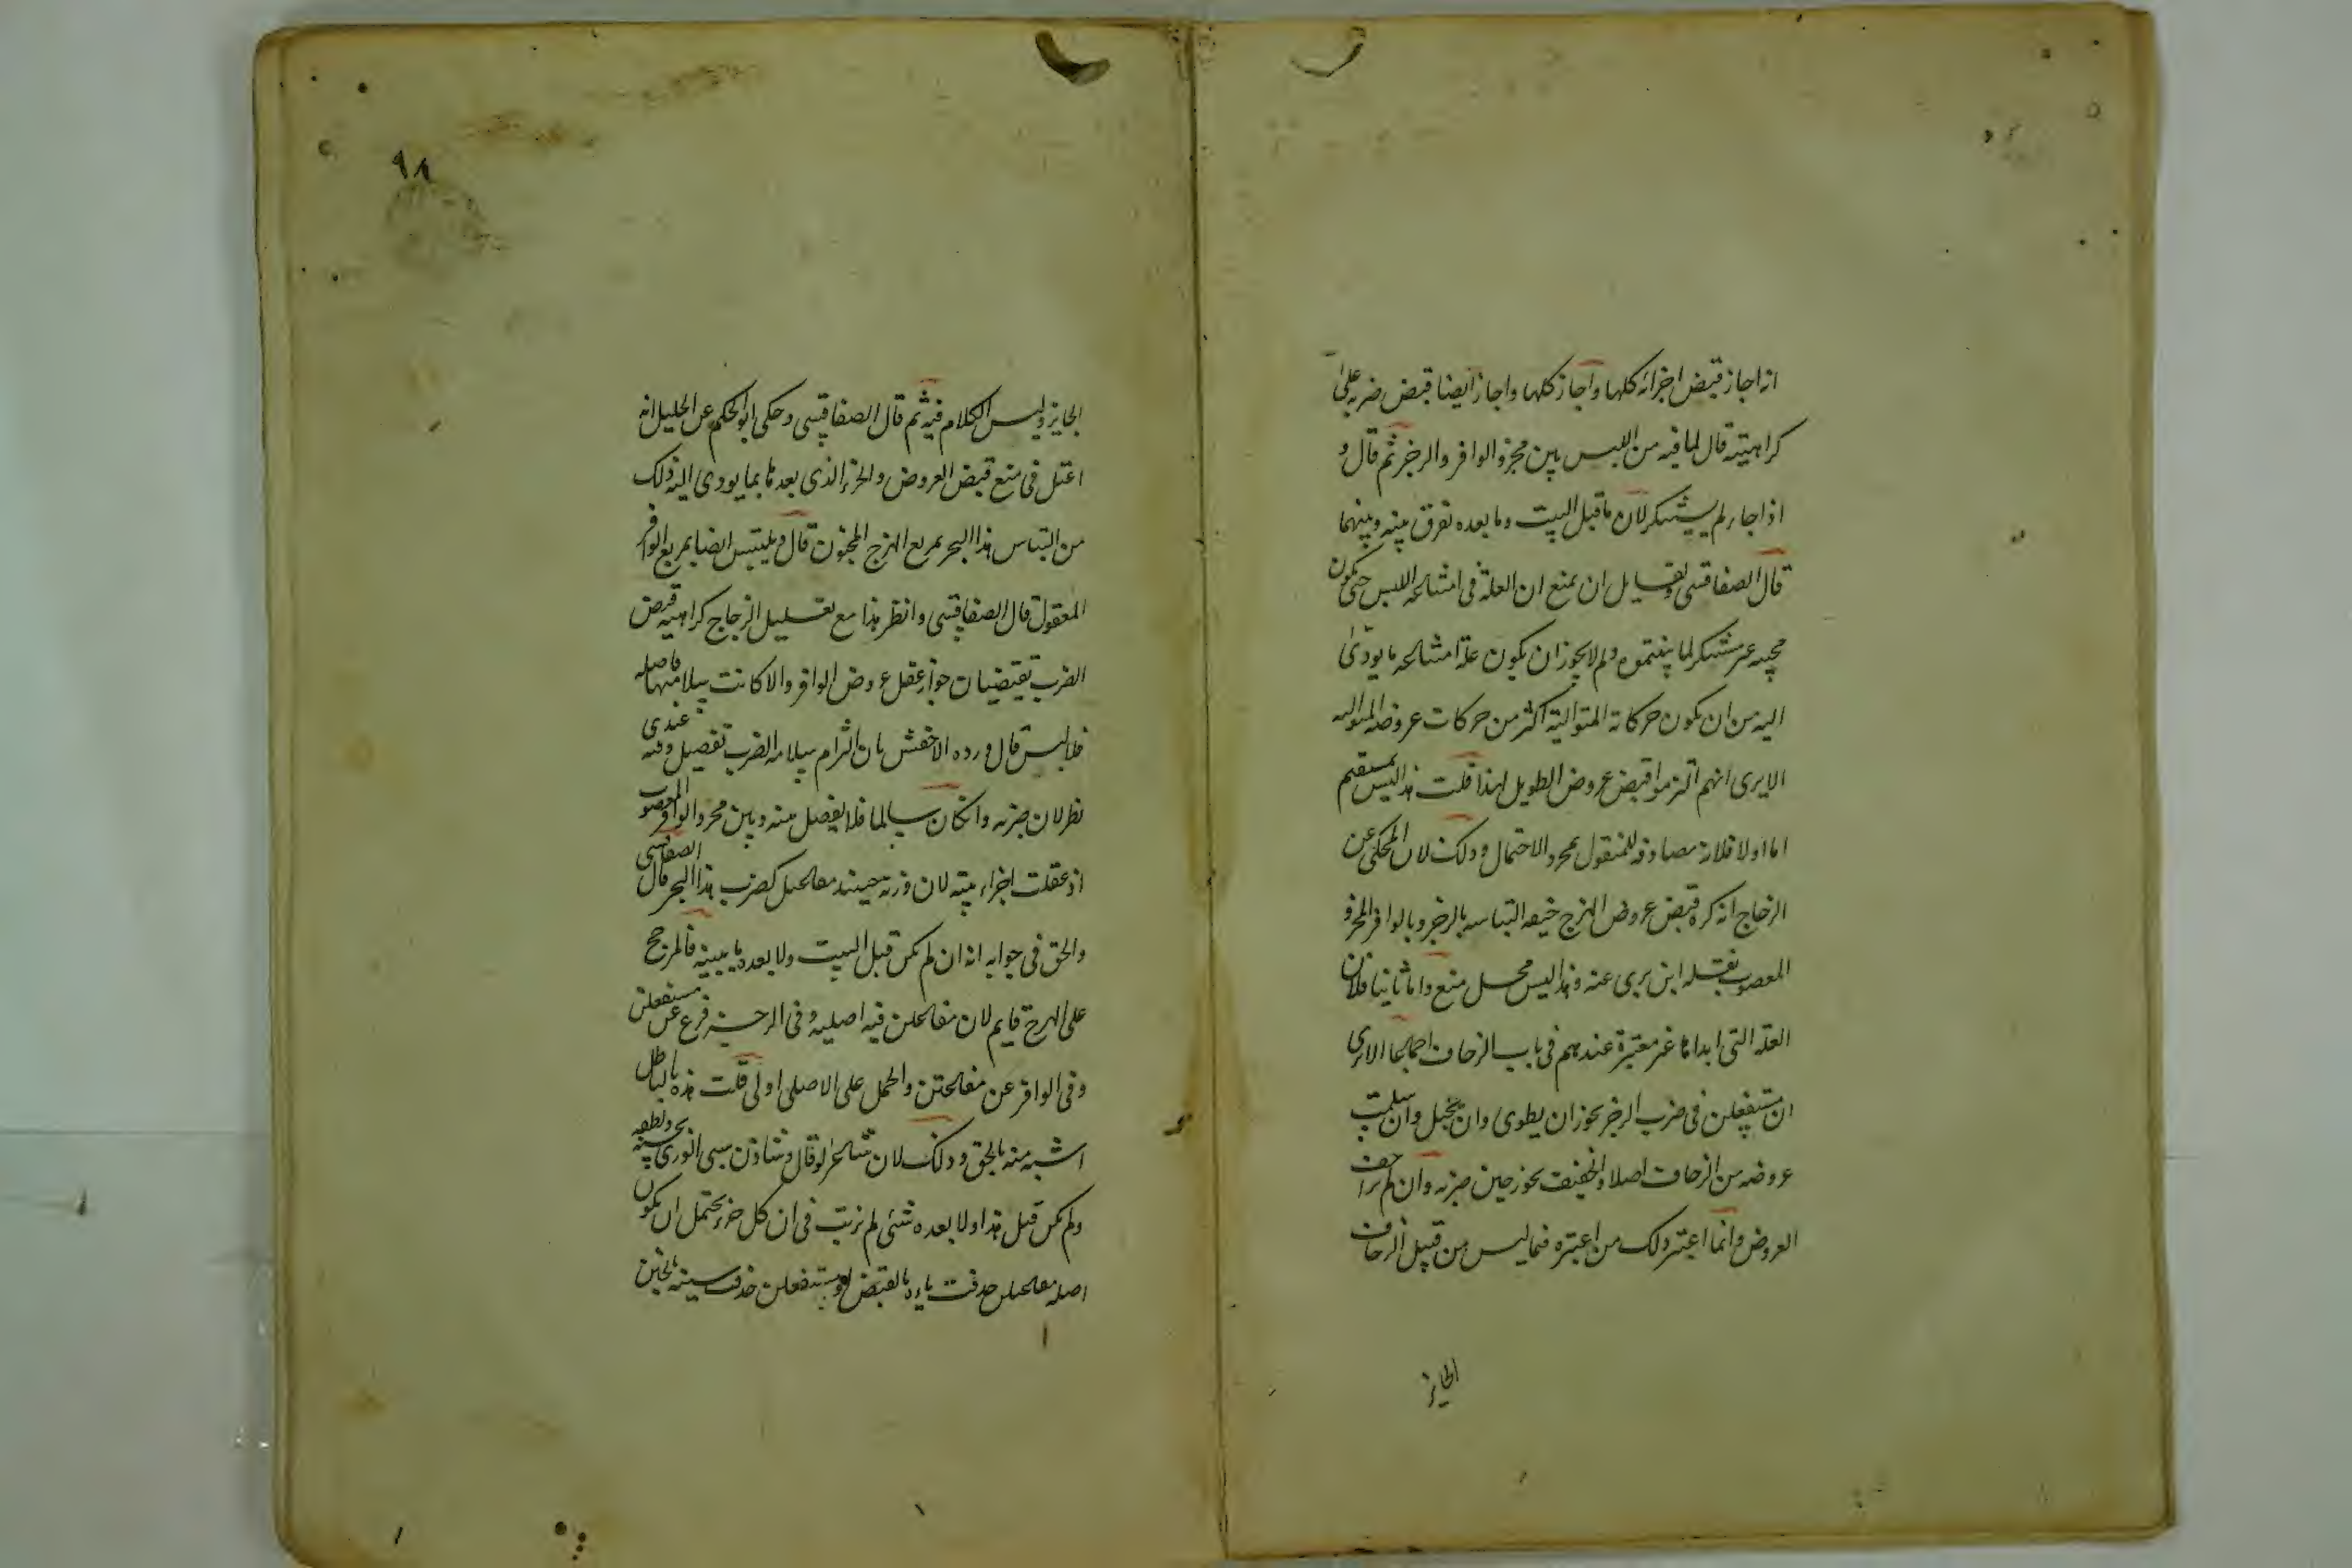 انه اجاز قبض اجزائه كلها واجاز كلها واجاز ايضا قبض ضربه على
كراهيته قال لما فيه من اللبس بين مجزو الوافر والرجز ثم قال و
اذا جاء لم يستنكر لان ما قبل البيت وما بعده تفرق بينه وبينهما
قال الصفاقسى ولقايل ان يمنع ان العلة فى امتناعه اللبس حتى يكون
مجيبه غير مستنكر لما ولم لا يجوز ان يكون علة امتناعه ما يودى
اليه من ان يكون حركاته المتوالية اكثر من حركات عروضه المتواليه
الا يرى انهم التزموا قبض عروض الطويل لهذا قلت هذا ليس بمستقيم
اما اولا فلانه مصادفه للمنقول بمجرد الاحتمال وذلك لان المحكى عن
الزجاج انه كره قبض عروض الهزج خيفه التباسه بالرجز وبالوافر المجزو
المعصوب نقله ابن برى عنه وهذا ليس محل منع واما ثانيا فلان
العلة التى ابداها غير معتبرة عندهم فى باب الزحاف اجماعا الا ترى
ان مستفعلن فى ضرب الرجز يجوز ان يطوى وان يخبل وان سلمت
عروضه من الزحاف اصلا والخفيف يجوز خبن ضربه وان لم يزاحف
العروض وانما اعتبر ذلك من اعتبره فيما ليس من قبيل الزحاف
الجايز
٩٨
الجايز وليس الكلام فيه ثم قال الصفاقسى وحكى ابو الحكم عن الخليل انه
اعتل فى منع قبض العروض والجزء الذى بعدها بما يودى اليه ذلك
من التباس هذا البحر بمربع الهزج المخبون قال ويلتبس ايضا بمربع الوافر
المعقول قال الصفاقسى وانظر هذا مع تعليل الزجاج كراهيه قبض
الضرب يقتضيان جواز عقل عروض الوافر والا كانت سلامتها فاصله
فلا لبس قال ورده الاخفش بان التزام سلامه الضرب تفصيل وفيه عندى
نظر لان ضربه وان كان سالما فلا يفصل بينه وبين مجزو الوافر المعصوب
اذ عقلت اجزاء بيته لان وزنه حينئذ مفاعيل كضرب هذا البحر قال الصفاقسى
والحق فى جوابه انه ان لم يكن قبل البيت ولا بعده ما يبينه فالمرجح
على الهرج قايم لان مفاعلن فيه اصليه وفى الرجز فرع عن مستفعلن
وفى الوافر عن مفاعلتن والحمل على الاصلى اولى قلت هذه بالباطل
اشبه منه بالحق وذلك لان شاعرا لو قال وشادن سبى الورى بحسنه ولطفه
ولم يكن قبل هذا ولا بعده شئى لم نرتب فى ان كل جزء يحتمل ان يكون
اصله مفاعيلن حذفت ياوه بالقبض او مستفعلن حذفت سينه بالخبن